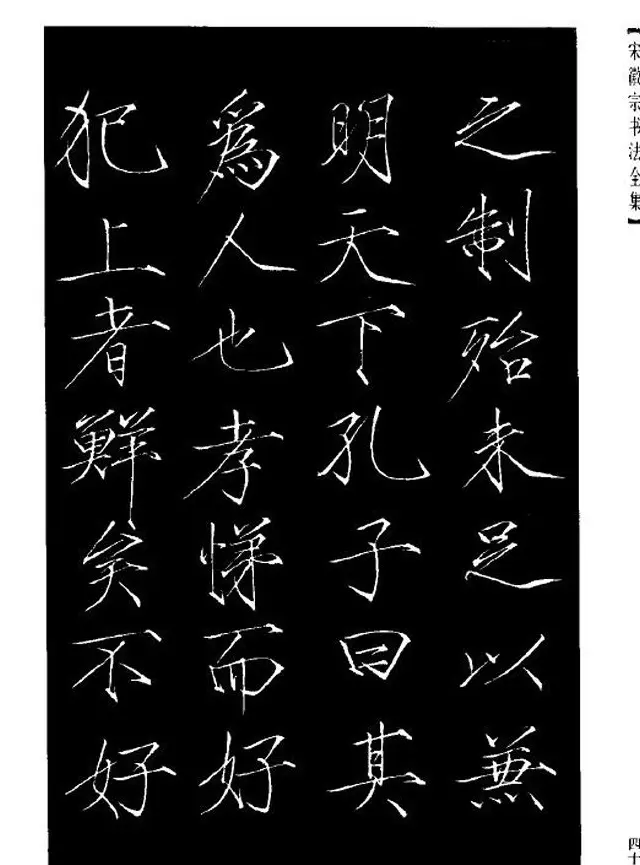 【宋徽宗书法全集】
之制殆未足以兼
明天下孔子曰其
為人也孝悌而好
犯上者鮮矣不好